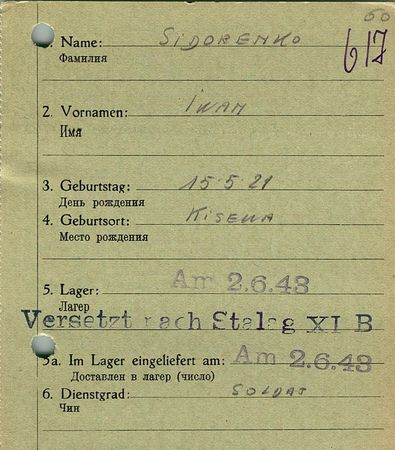 60
1. Name: SIDORENKO
Фамилия
617
2. Vornamen: IWAN
Имя
3. Geburtstag: 15.5.21
День рождения
4. Geburtsort: KISEWA
Место рождения
5. Lager: Am 2.6.43
Лагер
Versetzt nach Stalag XI B
5a. Im Lager eingeliefert am: Am 2.6.43
Доставлен в лагер (число)
6. Dienstgrad: SOLDAT
Чин